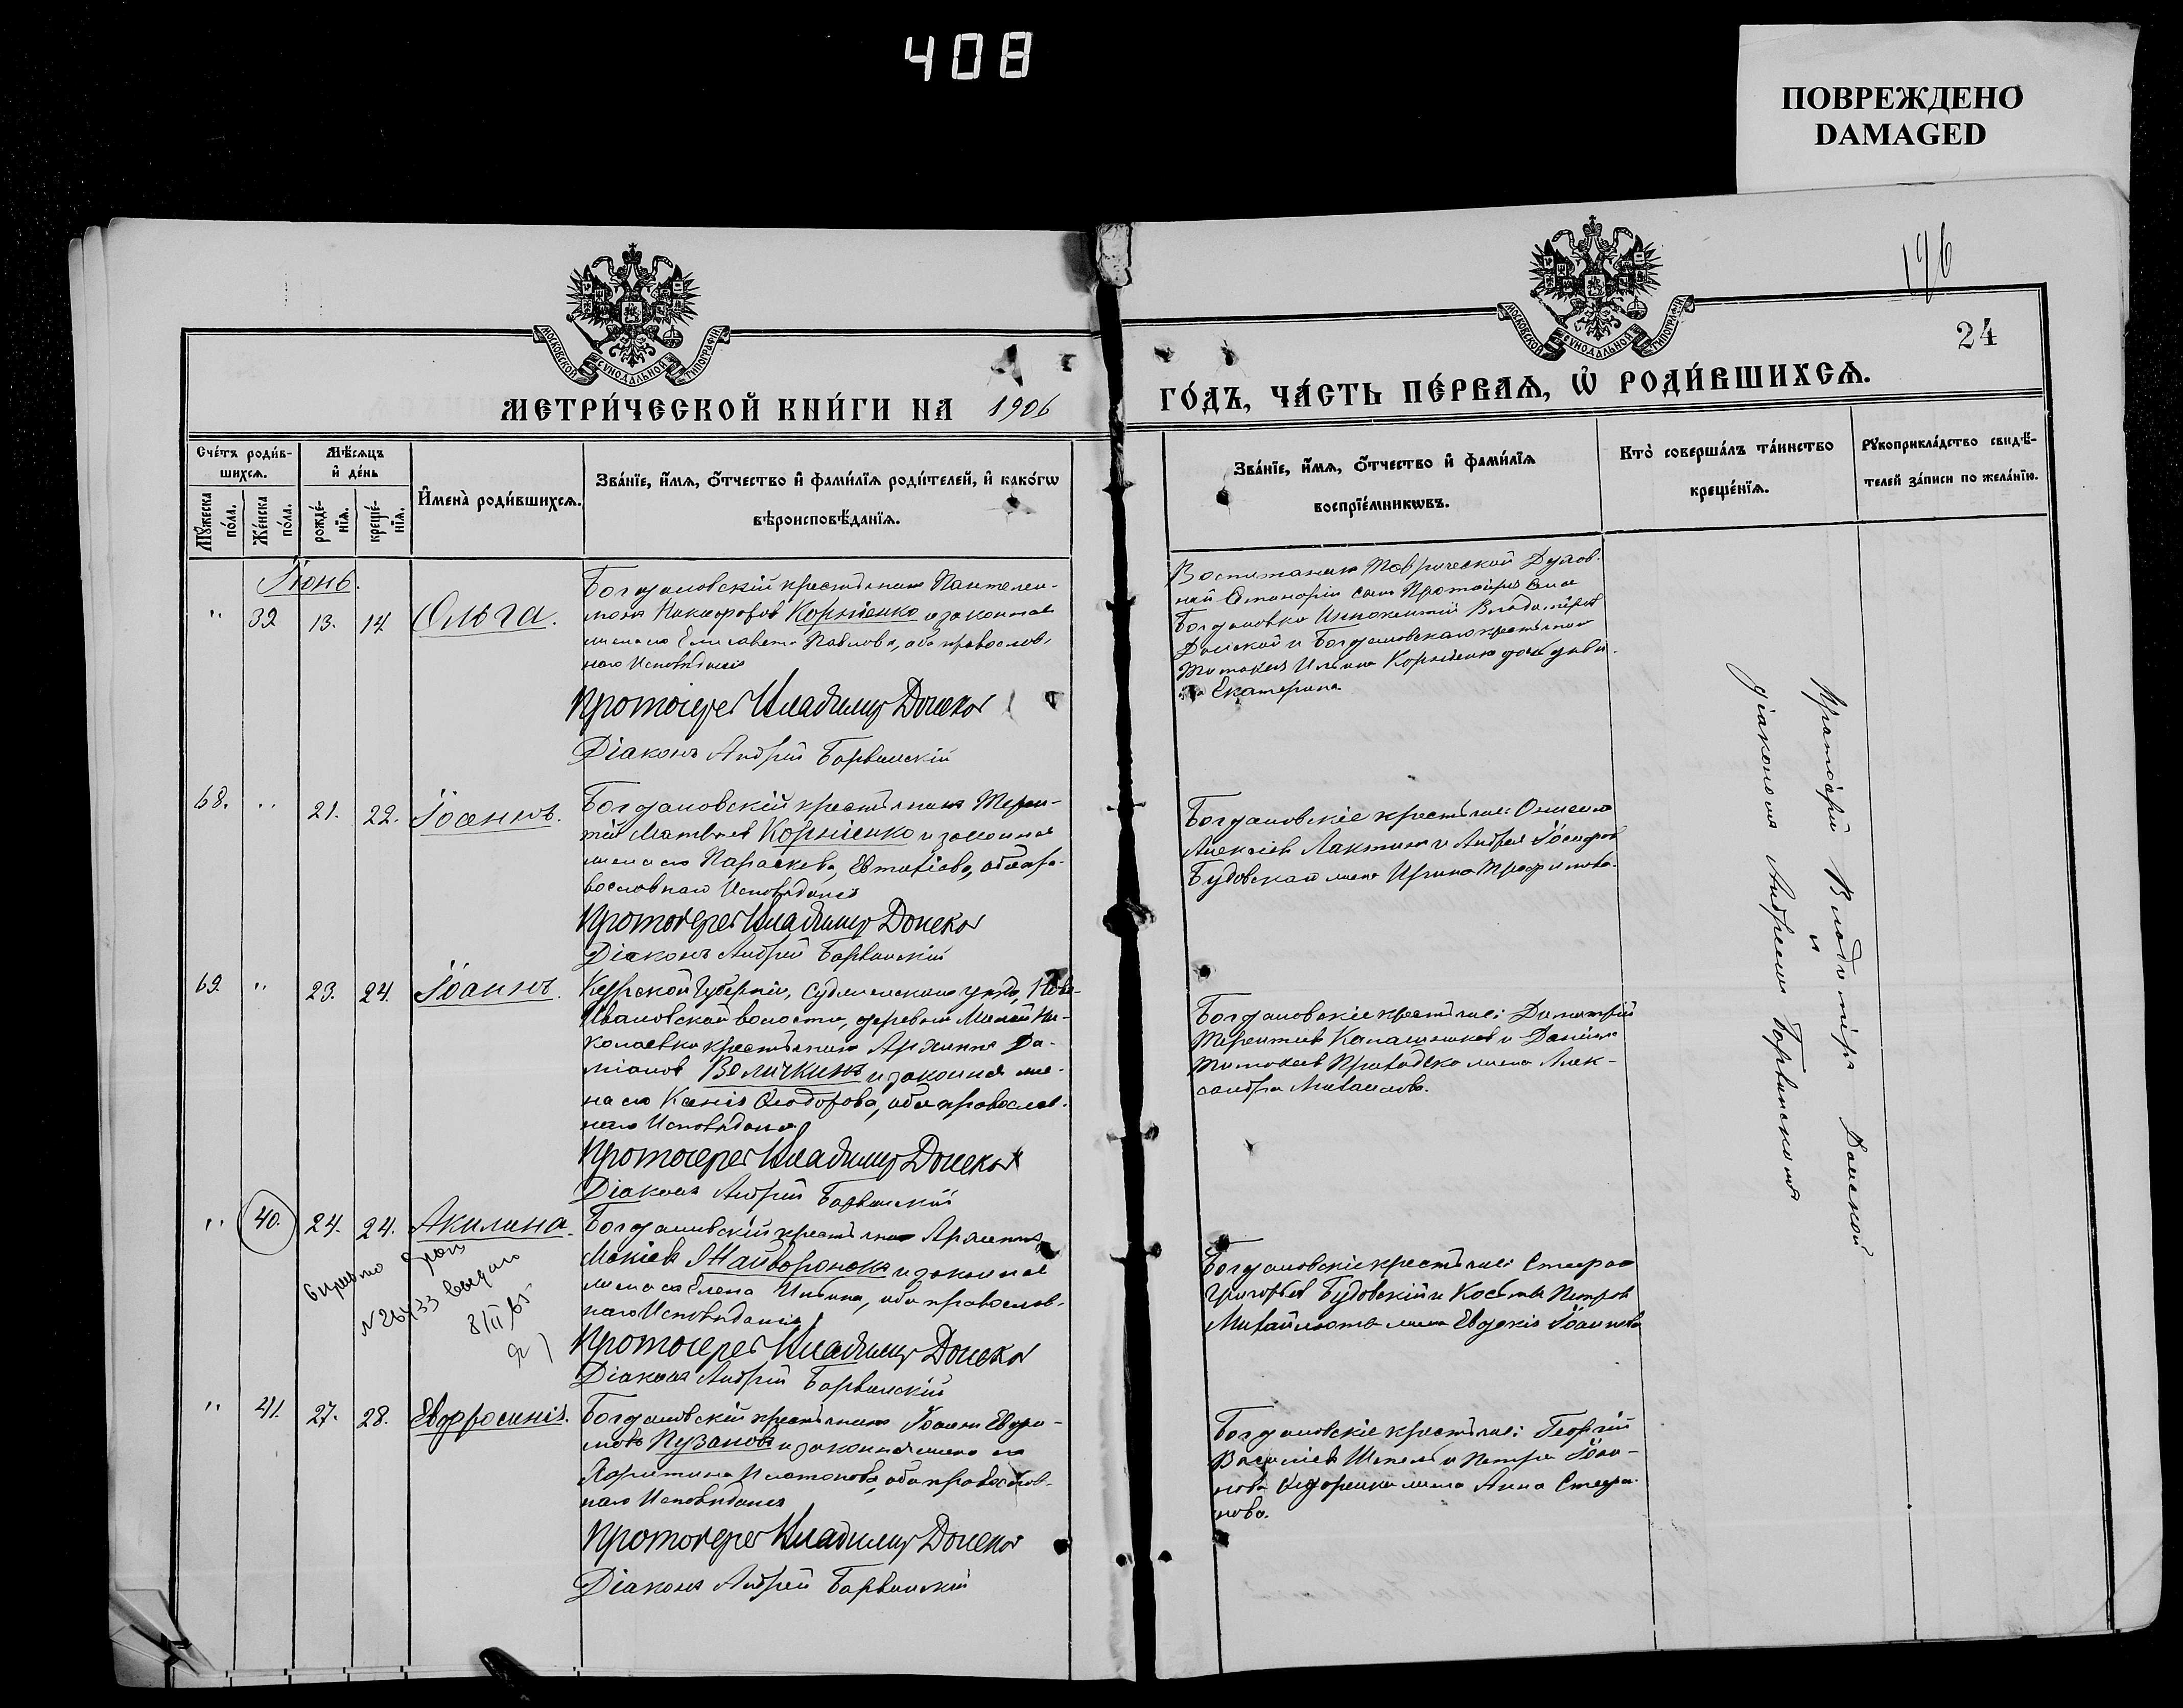 408
ПОВРЕЖДЕНО
DAMAGED
196
24
МОСКОВСКОЙ СѴНОДАЛЬНОЙ ТИПОГРАФІИ
МОСКОВСКОЙ СѴНОДАЛЬНОЙ ТИПОГРАФІИ
МЕТРИ́ЧЕСКОЙ КНИ́ГИ НА 1906
ГО́ДЪ, ЧА́СТЬ ПЕ́РВАѦ, Ѡ҆ РОДИ́ВШИХСѦ.
Сче́тъ роди́в-
шихсѧ.
Мꙋ́жеска
по́ла.
Же́нска
по́ла.
Мѣ́сѧцъ
и҆ де́нь
рожде́-
нїѧ.
креще́-
нїѧ.
И҆мена̀ роди́вшихсѧ.
Зва́нїе, и҆́мѧ, ѻ҆́тчество и҆ фами́лїѧ роди́телей, и҆ како́гѡ
вѣроисповѣ́данїѧ.
Зва́нїе, и҆́мѧ, ѻ҆́тчество и҆ фами́лїѧ
воспрїе́мникѡвъ.
Кто̀ соверша́лъ та́инство
креще́нїѧ.
Рꙋкоприкла́дство свидѣ́-
телей за́писи по жела́нїю.
Іюнь.
" 39 13. 14 Ольга.
Богдановскій крестьянинъ Пантелеи-
монъ Никифоровъ Корніенко и законная
жена его Елисавета Павлова, оба православ-
наго Исповѣданія
Протоіерей Владиміръ Донской
Діаконъ Андрей Барвинскій
Воспитанникъ Таврической Духов-
ной Семинаріи сынъ Протоіерея села
Богдановки Иннокентій Владиміровъ
Донской и Богдановскаго крестьянина
Корніенко дочь дѣви-
ца Екатерина
68. " 21. 22. Іоаннъ.
Богдановскій крестьянинъ Терен-
тій Матвѣевъ Корніенко и законная
жена его Параскева Евтихіева, оба пра-
вославнаго Исповѣданія
Протоіерей Владиміръ Донской
Діаконъ Андрей Барвинскій
Богдановскіе крестьяне:
Алексіевъ и Андрея Іосифова
Будовскаго жена Ирина Трофимова.
69. " 23. 24. Іоаннъ.
Курской Губерніи, Суджанскаго уѣзда, Ново-
Ивановской волости, деревни Малой Ни-
колаевки крестьянинъ Архиппъ Да-
міановъ Величкинъ и законная же-
на его Ксенія Ѳеодорова, оба православ-
наго Исповѣданія
Протоіерей Владиміръ Донской
Діаконъ Андрей Барвинскій
Богдановскіе крестьяне: Димитрій
Терентіевъ Калашниковъ и Даніила
Тимофеева Приходько жена Алек-
сандра Михайлова.
" 40. 24. 24. Акилина.
Богдановскій крестьянинъ Архиппъ
Мокіевъ Жайворонокъ и законная
жена его Елена Ильина, оба православ-
наго Исповѣданія
Протоіерей Владиміръ Донской
Діаконъ Андрей Барвинскій
Богдановскіе крестьяне: Стефанъ
Григорьевъ Будовскій и Косьмы Петрова
жена Евдокія Іоаннова
N 26433 выдано
8/II 65
" 41. 27. 28. Евфросинія.
Богдановскій крестьянинъ Іоаннъ Евфи-
мовъ Пузановъ и законная жена его
Харитина Платонова, оба православ-
наго Исповѣданія
Протоіерей Владиміръ Донской
Діаконъ Андрей Барвинскій
Богдановскіе крестьяне: Георгій
Василіевъ Шепель и Петра Іоан-
нова жена Анна Стефа-
нова.
Протоіерей Владиміръ Донской
и
діакономъ Андреемъ Барвинскимъ